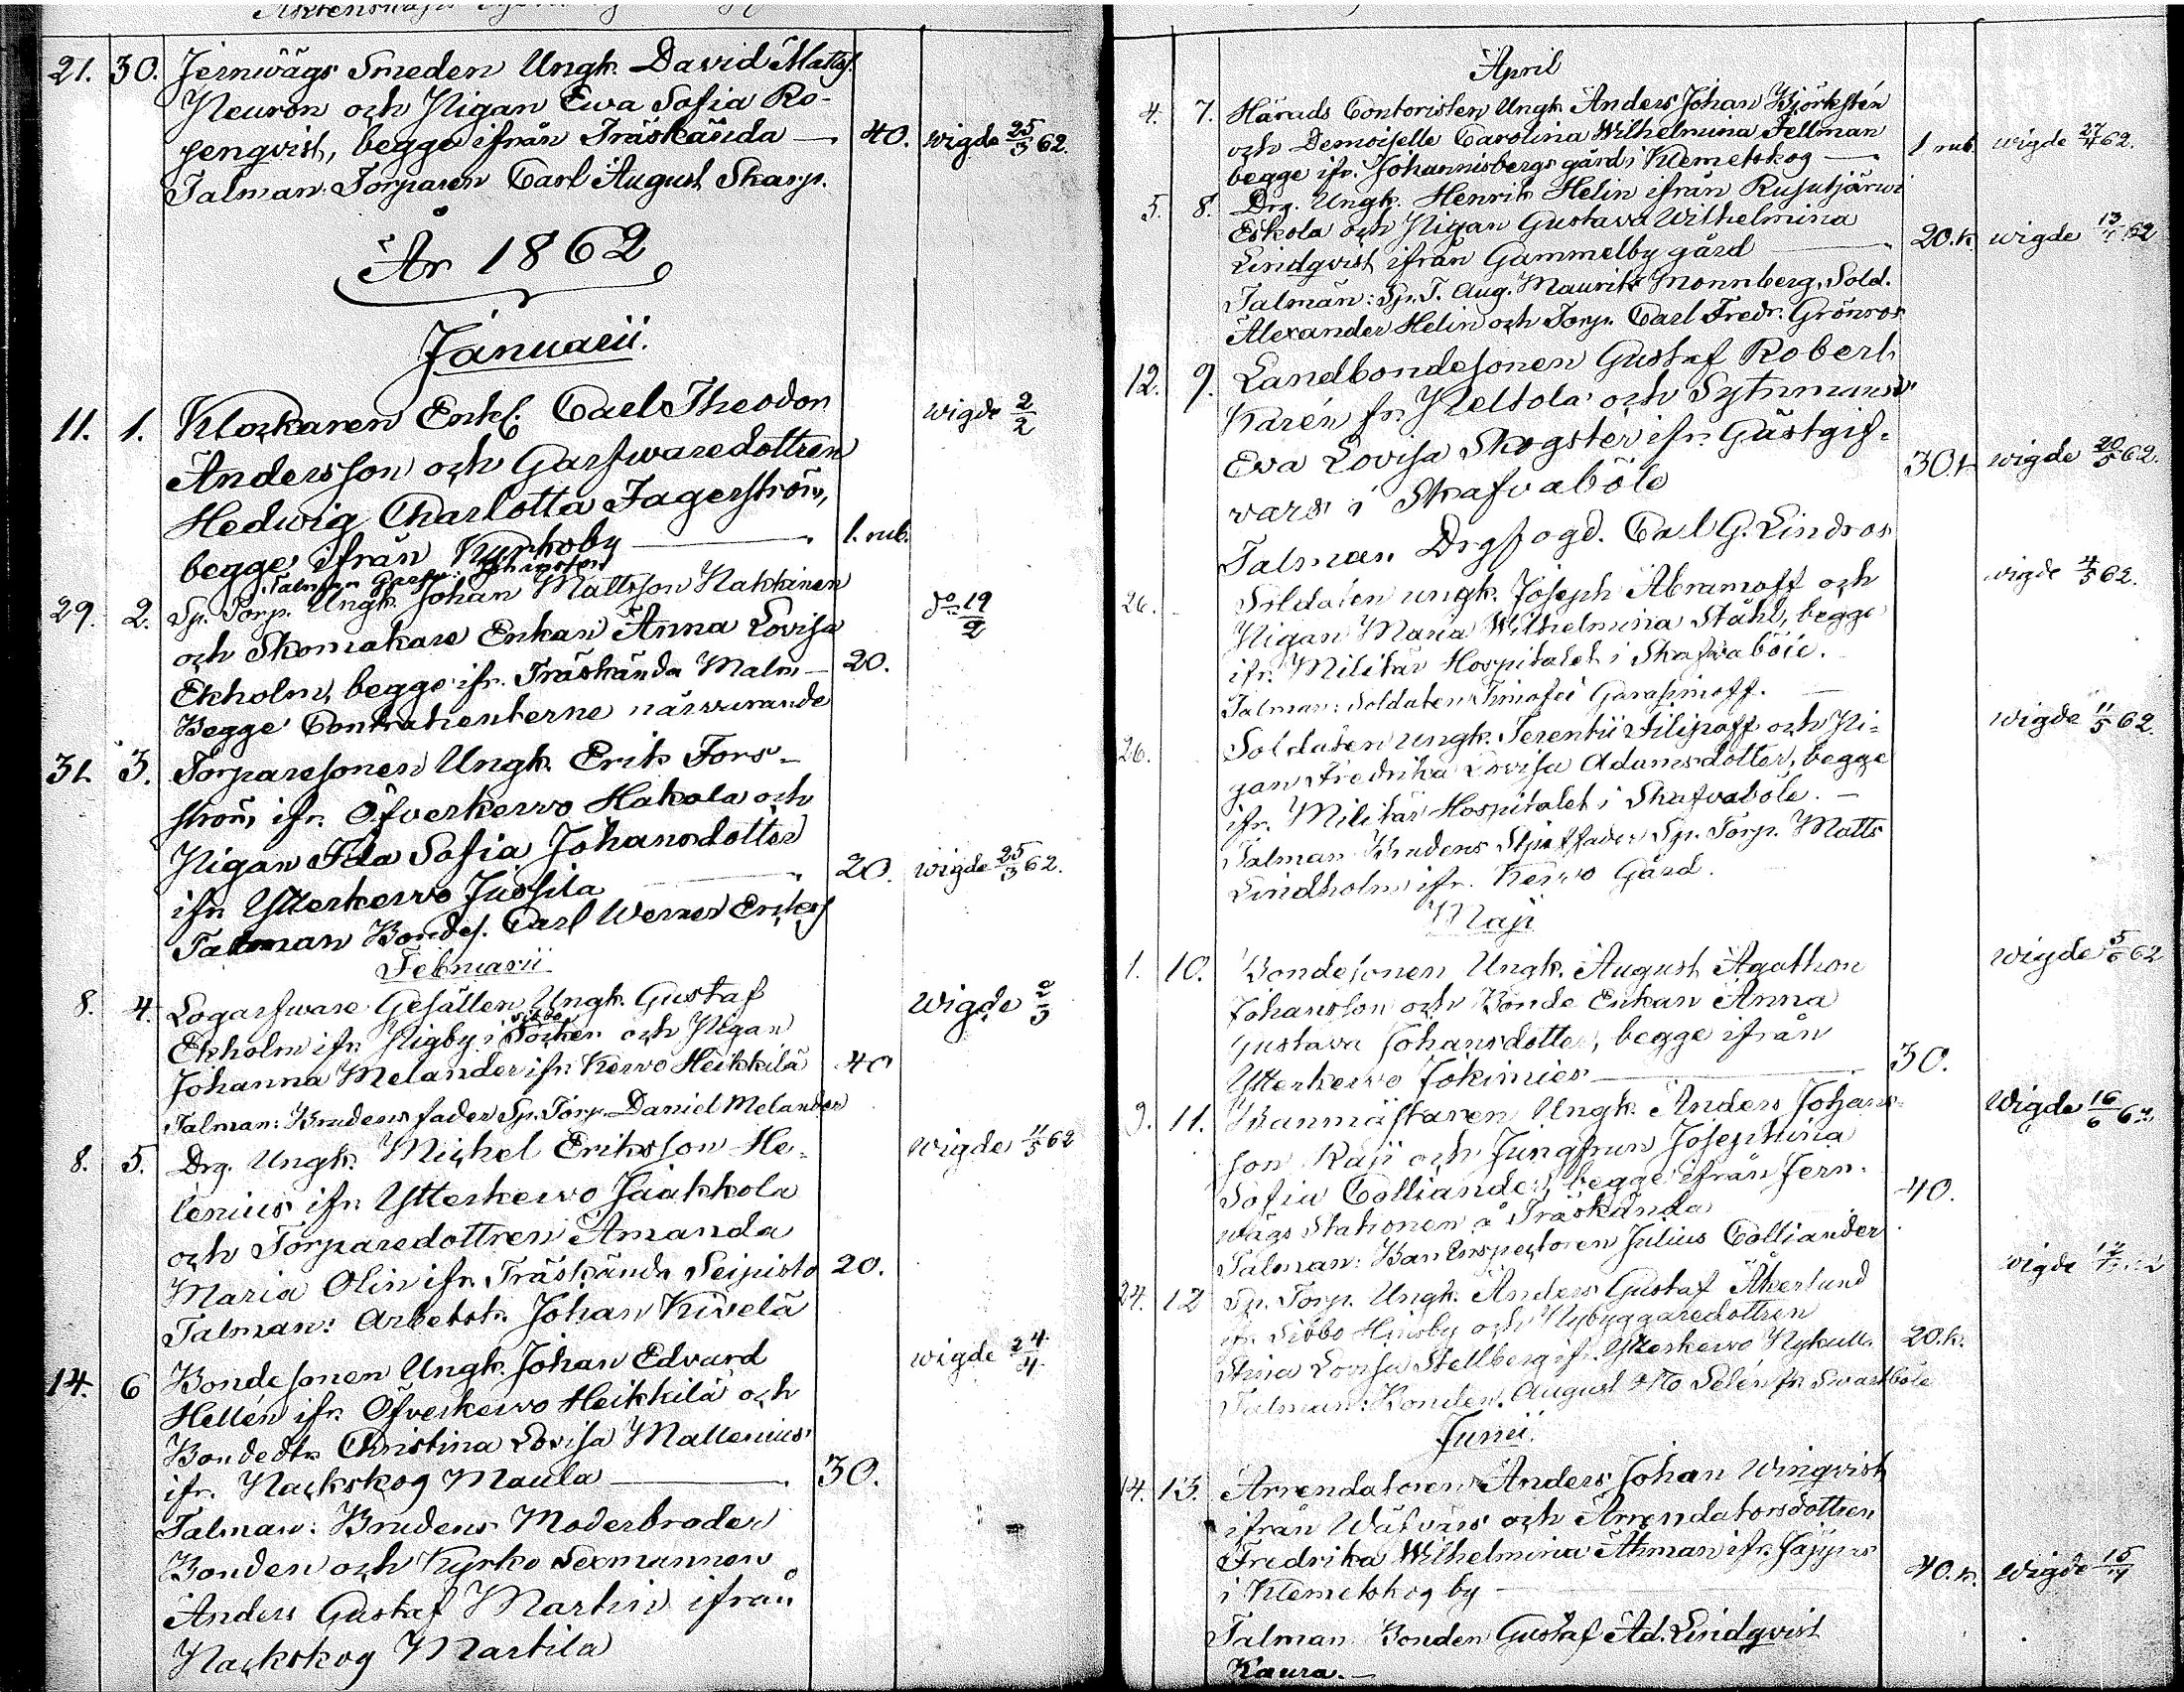 21. 30. Jernwägs Smeden Ungk. David Matts.
Neuron och Pigan Ewa Sofia Ro-
senqvist, begge ifrån Träskända — 40. wigde 25/3 62.
Talman: Torparen Carl August Skarp.
År 1862
Januarii.
11. 1. Klockaren Enkl. Carl Theodor wigde 2/2
Andersson och Garfwaredottren
Hedwig Charlotta Fagerström,
begge ifrån Kyrkoby — 1. rub.
Talman Garfv. Johansson
29. 2. Sp. Torp. Ungk. Johan Mattsson Hakkinen do 19/2
och Skomakare Enkan Anna Lovisa
Ekholm, begge ifr. Träskända Malm — 20.
Begge Contrahenterne närvarande
31. 3. Torparesonen Ungk. Erik Fors-
ström ifr. Öfverkervo Hakala och
Pigan Ida Sofia Johansdotter
ifr. Ytterkervo Jussila — 20. wigde 25/3 62.
Talman Bondes. Carl Werner Eriks
Februarii
8. 4. Logarfware Gesällen Ungk. Gustaf wigde 20/3
Ekholm ifr. Nigby i Sibbo Socken och Pigan
Johanna Melander ifr. Kervo Heikkilä 40
Talman: Brudens fader Sp. Torp. Daniel Melander
8. 5. Drg. Ungk. Michel Eriksson He- wigde 11/5 62
lenius ifr. Ytterkervo Jaakkola
och Torparedottren Amanda
Maria Olin ifr. Träskända Seipisto 20.
Talman: Arbetsk. Johan Kivelä
14. 6 Bondesonen Ungk. Johan Edvard wigde 24/4
Hellén ifr. Öfverkervo Heikkilä och
Bondedtr. Christina Lovisa Mallenius
ifr. Nackskog Maula — 30.
Talman: Brudens Moderbroder
Bonden och Kyrko Sexmannen
Anders Gustaf Martin ifrån
Nackskog Martila
April
4. 7. Härads Contoristen Ungk. Anders Johan Björkstén
och Demoiselle Carolina Wilhelmina Fellman
begge ifr. Johannisbergs gård i Klemetskog — 1 rub. wigde 27/4 62.
5. 8. Drg. Ungk. Henrik Helin ifrån Rusutjärvi
Eskola och Pigan Gustava Wilhelmina
Lindqvist ifrån Gammelby gård — 20. k wigde 13/ 62
Talmän: Sp. T. Aug. Maurits Monnberg, Sold.
Alexander Helin och Torp. Carl Fredr. Grönros
12. 9. Landbondesonen Gustaf Robert
Karén fr. Peltola och Sytnmansk.
Eva Lovisa Skogster ifr. Gästgif-
vars i Skafvaböle 30. k wigde 20/5 62.
Talman Drgfogd. Carl G. Lindros
26. Soldaten ungk. Joseph Abramoff och wigde 4/5 62.
Pigan Maria Wilhelmina Ståhl, begge
ifr. Militär Hospitalet i Skafvaböle.
Talman: Soldaten Timofei Garasimoff.
26. Soldaten ungk. Terentii Filipoff och Pi- wigde 11/5 62.
gan Fredrika Lovisa Adamsdotter, begge
ifr. Militär Hospitalet i Skafvaböle. —
Talman Brudens Stjuffader Sp. Torp. Matts
Lindholm ifr. Kervo Gård.
Maji
1. 10. Bondesonen Ungk. August Agathon wigde 5/6 62
Johansson och Bonde Enkan Anna
Gustava Johansdotter, begge ifrån
Ytterkervo Jokimies — 30.
9. 11. Banmästaren Ungk. Anders Johans- wigde 16/6 62
son Kaji och Jungfrun Josephina
Sofia Colliander, begge ifrån Jern-
wägs Stationen å Träskända 40.
Talman: Ban Inspectoren Julius Colliander
24. 12 Sp. Torp. Ungk. Anders Gustaf Åkerlund wigde
ifr. Sibbo Hindsby och Nybyggaredottren
Stina Lovisa Stellberg if. Ytterkervo Nykulla 20. k.
Talman: Bonden August Otto Selén fr. Swartböle
Junii.
14. 13. Arrendatoren Anders Johan Winqvist
ifrån och Arrendatorsdottren
Fredrika Wilhelmina Åhman ifr. Jäppes
i Klemetskog by — 40. k. wigde 15/7
Talman Bonden Gustaf Ad. Lindqvist
Kaura. —